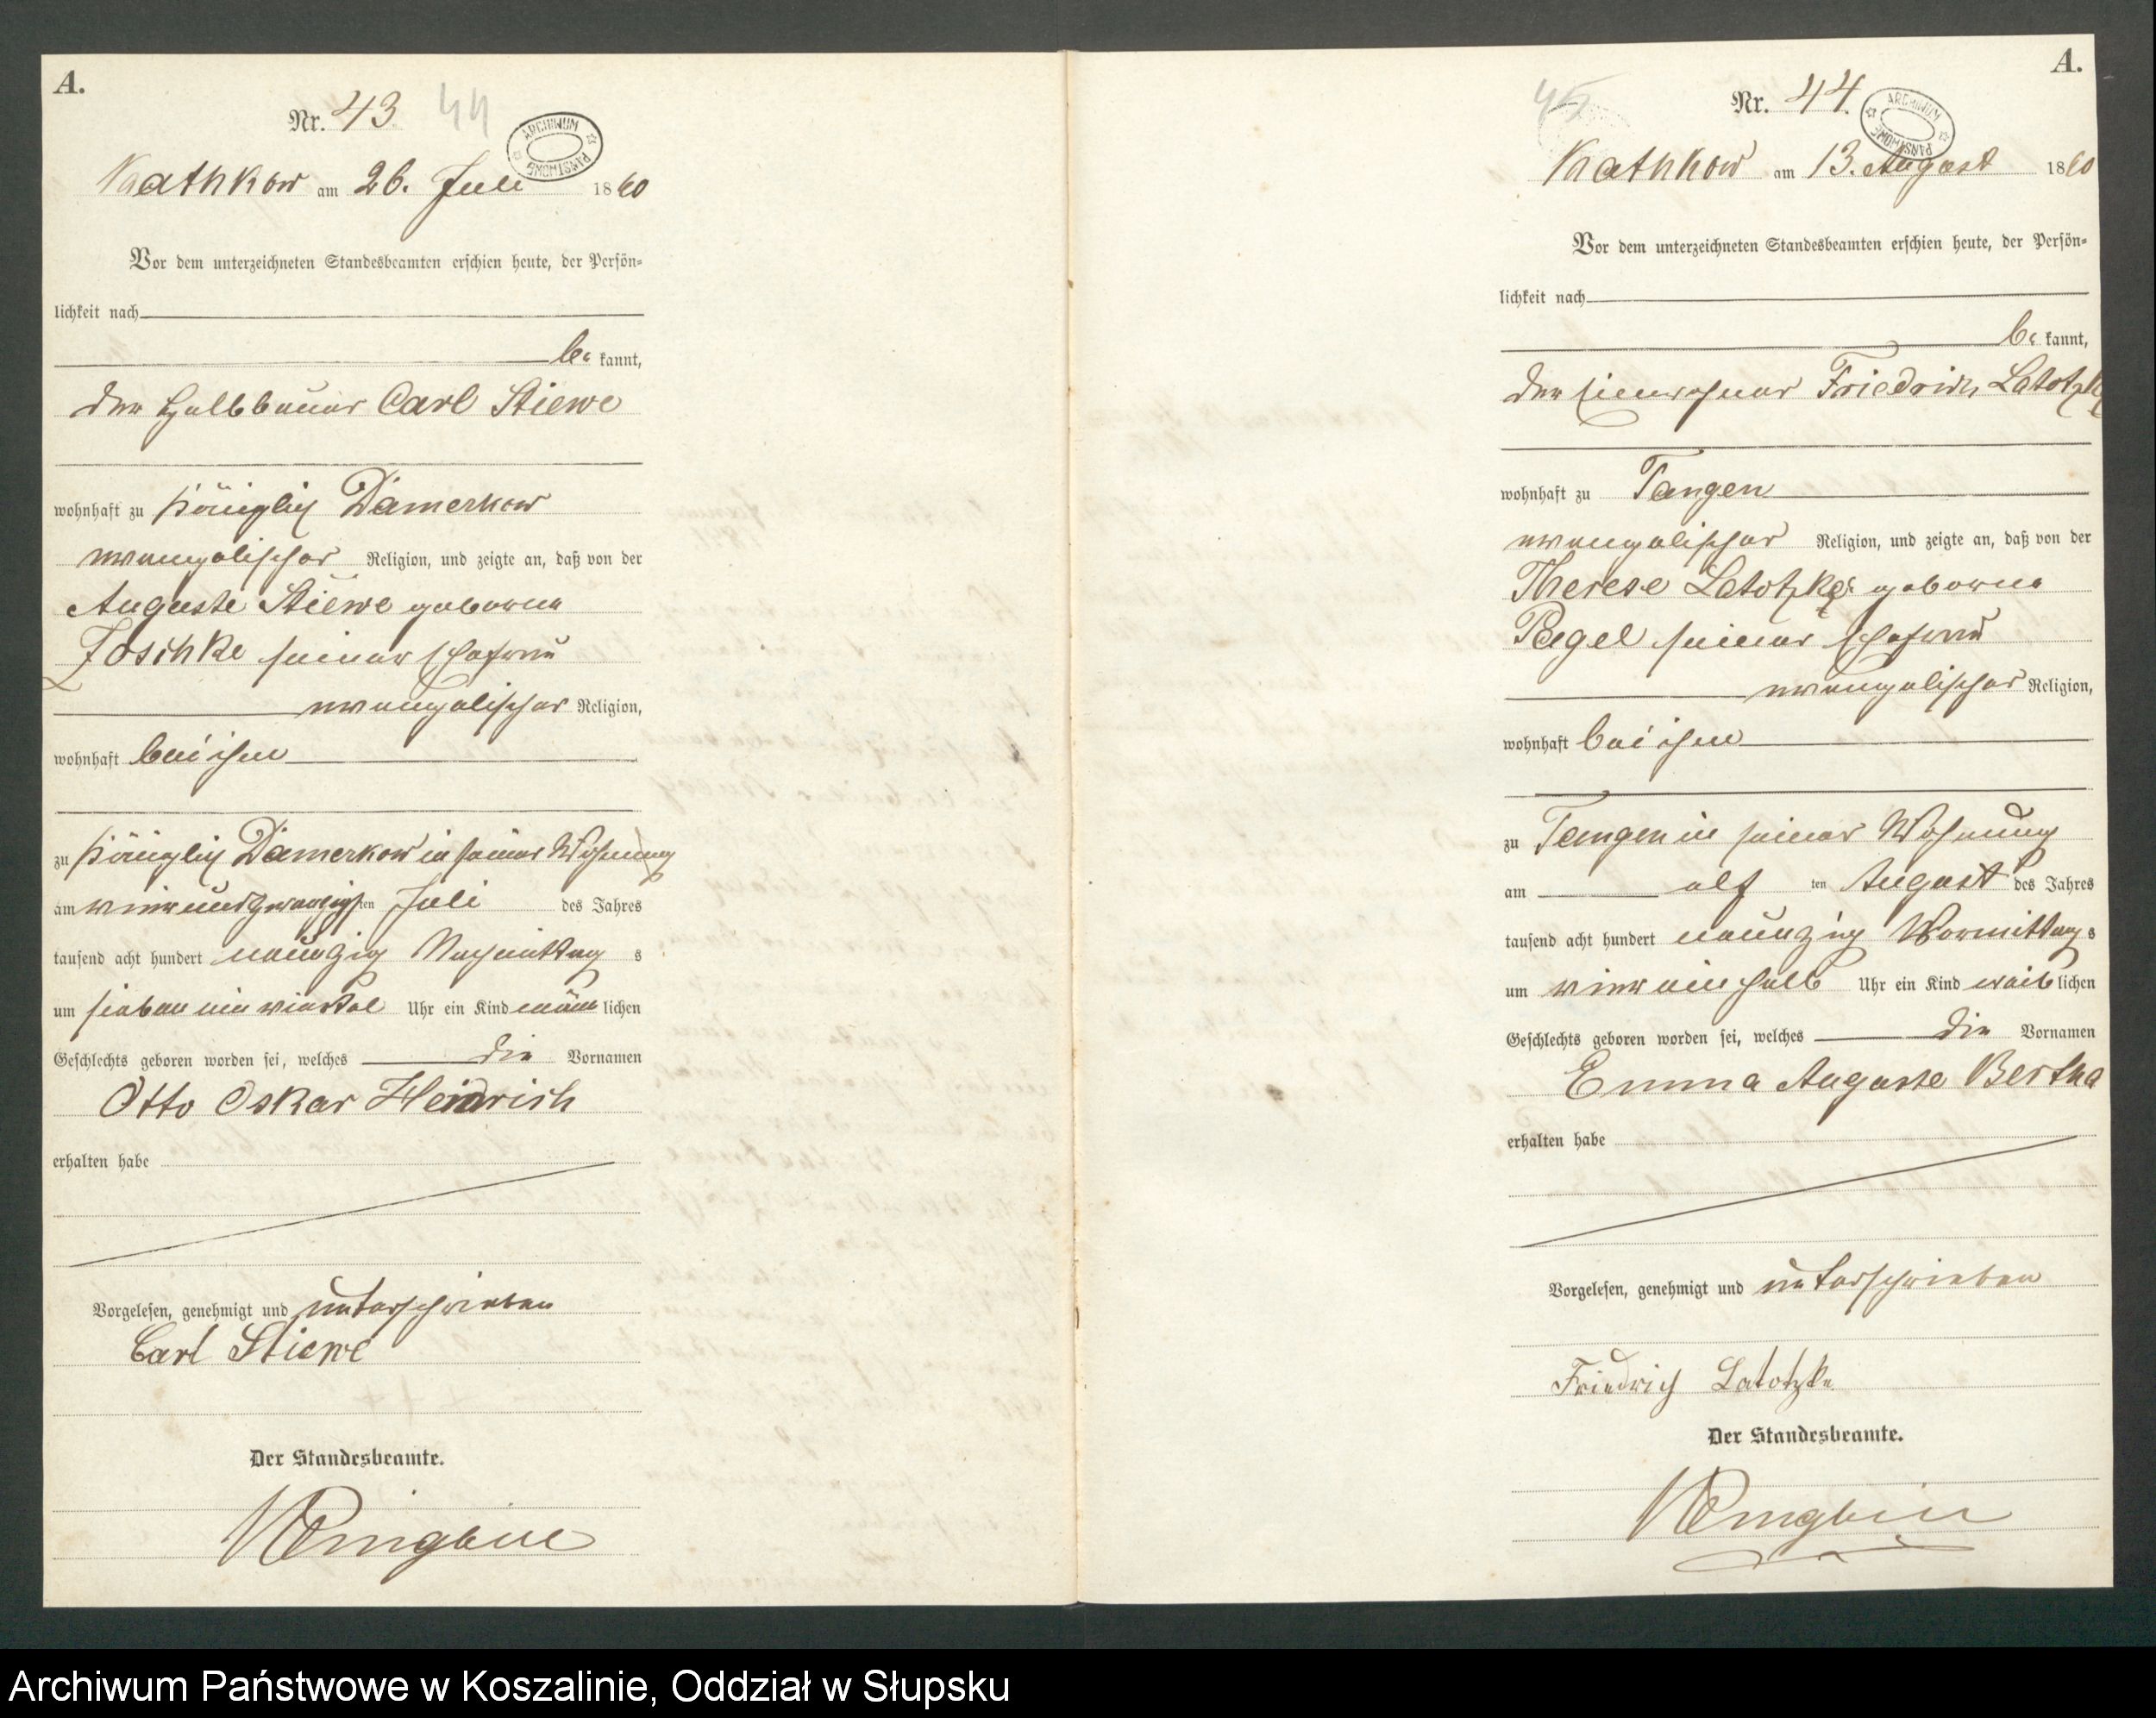 A.
Nr. 43 44
ARCHIWUM PAŃSTWOWE
Kathkow am 26. Juli 1890
Vor dem unterzeichneten Standesbeamten erschien heute, der Persön-
lichkeit nach
be kannt,
der Halbbauer Carl Stiewe
wohnhaft zu Königlich Damerkow
evangelischer Religion, und zeigte an, daß von der
Auguste Stiewe geborene
Joschke seiner Ehefrau
evangelischer Religion,
wohnhaft bei ihm
zu Königlich Damerkow in seiner Wohnung
am vierundzwanzigsten Juli des Jahres
tausend acht hundert neunzig Nachmittag s
um sieben ein viertel Uhr ein Kind männlichen
Geschlechts geboren worden sei, welches die Vornamen
Otto Oskar Heinrich
erhalten habe
Vorgelesen, genehmigt und unterschrieben
Carl Stiewe
Der Standesbeamte.
A.
45 Nr. 44.
ARCHIWUM PAŃSTWOWE
Kathkow am 13. August 1890
Vor dem unterzeichneten Standesbeamten erschien heute, der Persön-
lichkeit nach
be kannt,
der Einwohner Friedrich Latotzke
wohnhaft zu Tangen
evangelischer Religion, und zeigte an, daß von der
Therese Latotzke geborene
Pagel seiner Ehefrau
evangelischer Religion,
wohnhaft bei ihm
zu Tangen in seiner Wohnung
am elf ten August des Jahres
tausend acht hundert neunzig Vormittags
um vier ein halb Uhr ein Kind weiblichen
Geschlechts geboren worden sei, welches die Vornamen
Emma Auguste Bertha
erhalten habe
Vorgelesen, genehmigt und unterschrieben
Friedrich Latotzke
Der Standesbeamte.
Archiwum Państwowe w Koszalinie, Oddział w Słupsku